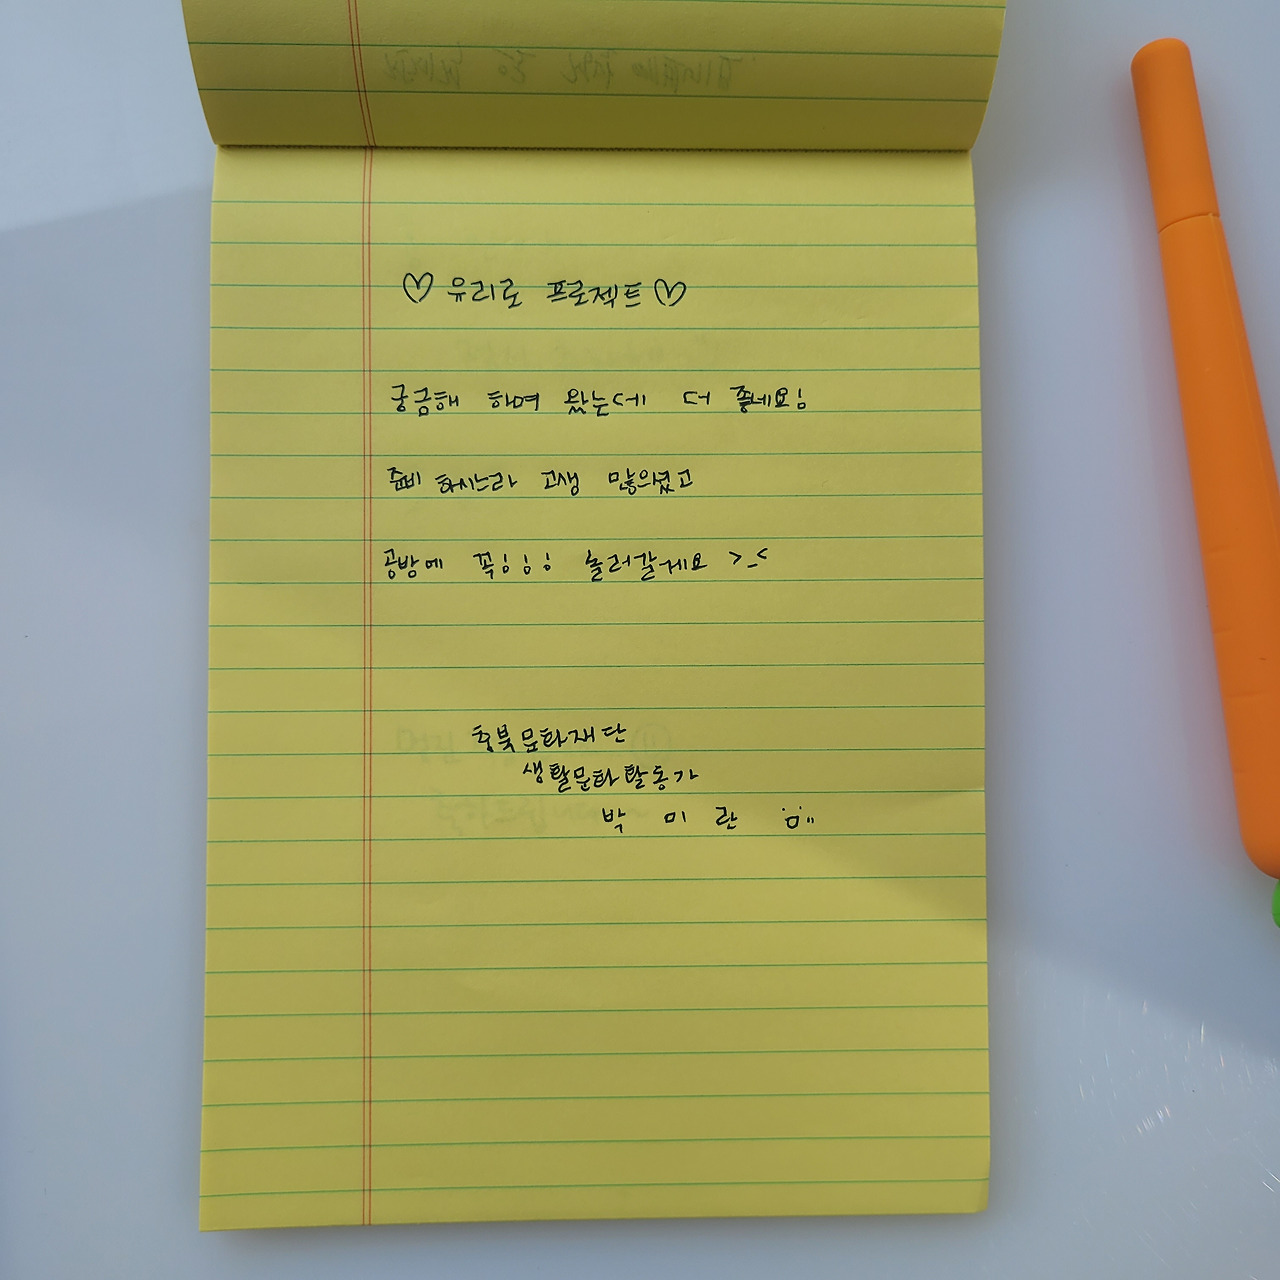 ♡ 유리로 프로젝트 ♡
궁금해 하며 왔는데 더 좋네요!
준비 하시느라 고생 많으셨고
공방에 꼭!!! 놀러갈게요 >_<
충북문화재단
생활문화활동가
박 미 란